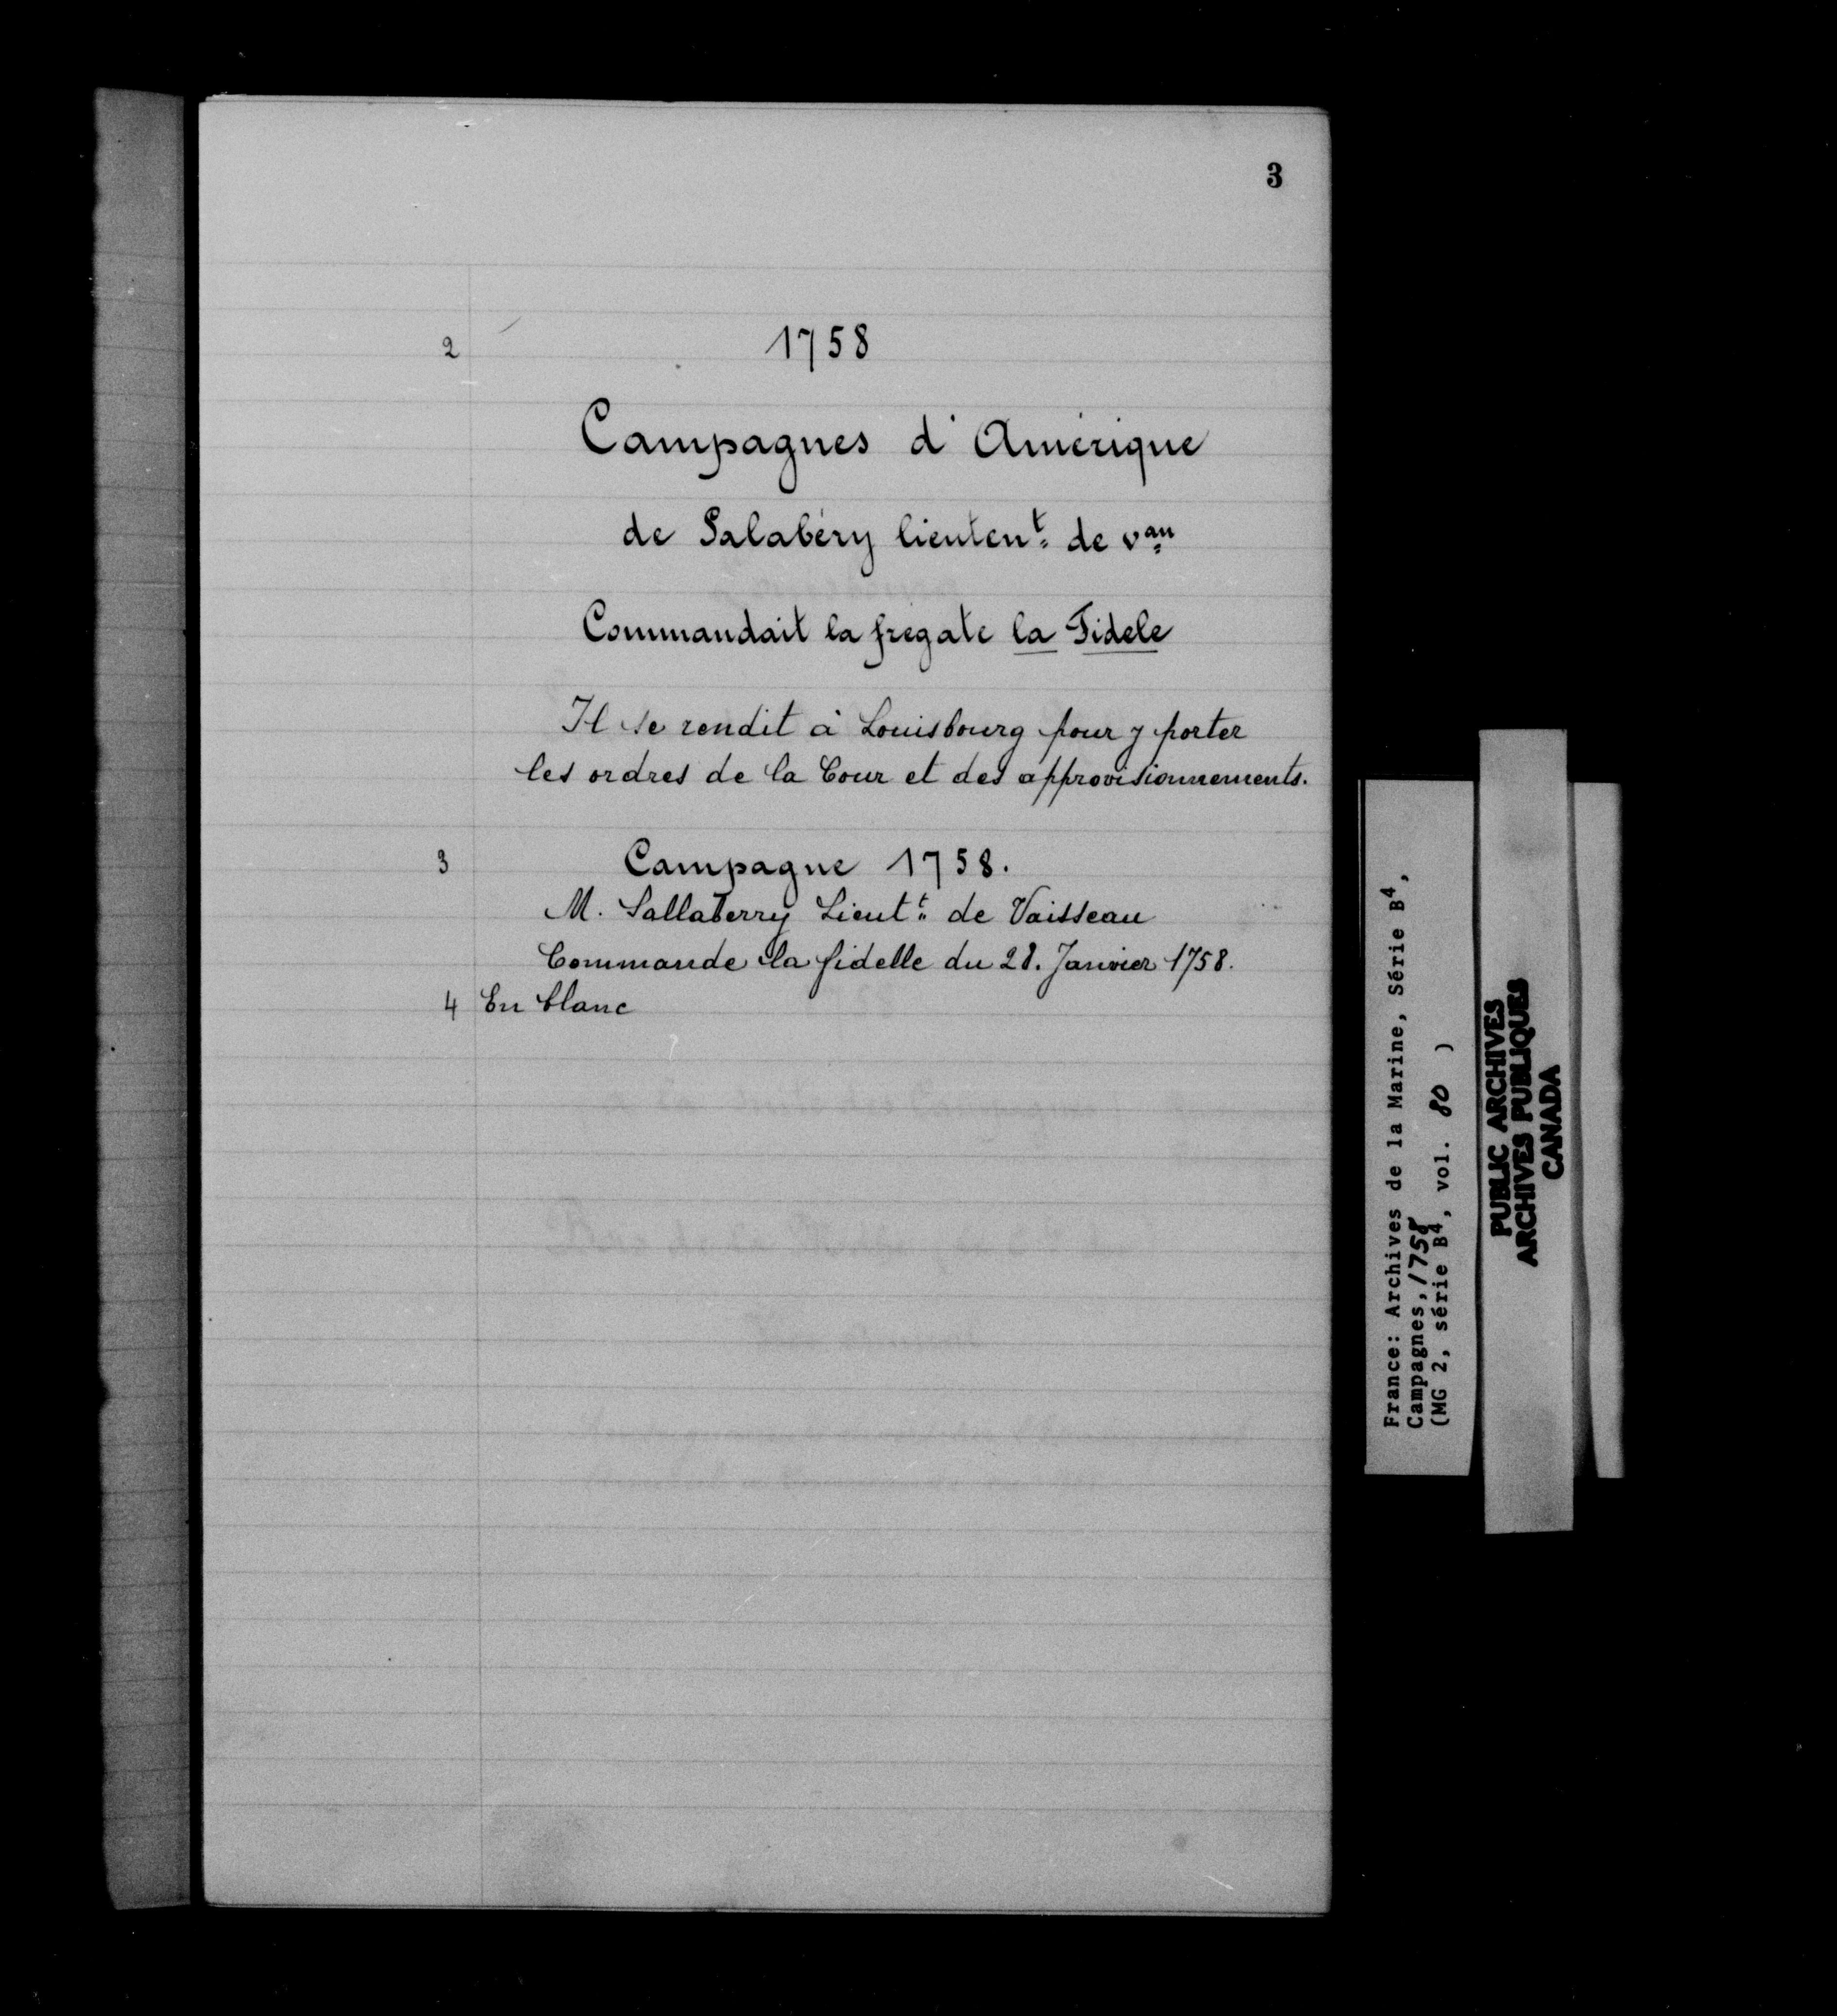 3
2 1758
Campagnes d'Amérique
de Salabéry lieuten.t de v.au
Commandait la fregate la Fidele
Il se rendit à Louisbourg pour y porter
les ordres de la Cour et des approvisionnements.
3 Campagne 1758.
M. Sallaberry Lieut.t de Vaisseau
Commande la fidelle du 28. Janvier 1758.
4 En blanc
France: Archives de la Marine, Série B4,
Campagnes, 1758
(MG 2, série B4, vol. 80 )
PUBLIC ARCHIVES
ARCHIVES PUBLIQUES
CANADA